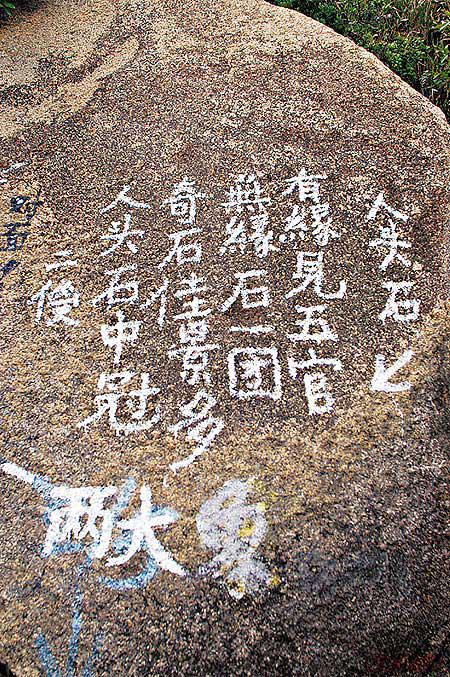 人头石
有緣见五官
無緣石一团
奇石佳景多
人头石中冠
二便
两大